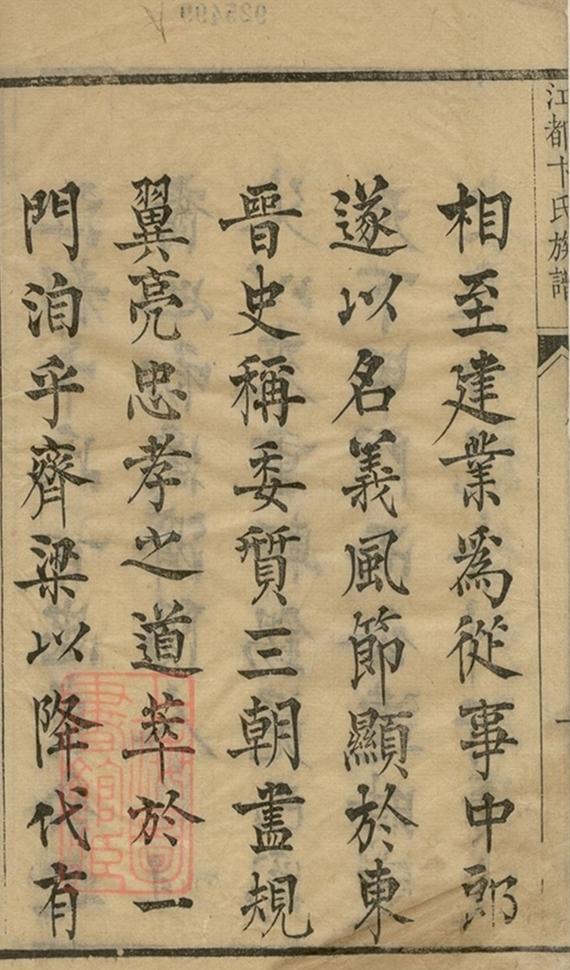 江都卞氏族譜
相至建業爲從事中郎
遂以名義風節顯於東
晉史稱委質三朝盡規
翼亮忠孝之道萃於一
門洎乎齊梁以降代有
925499